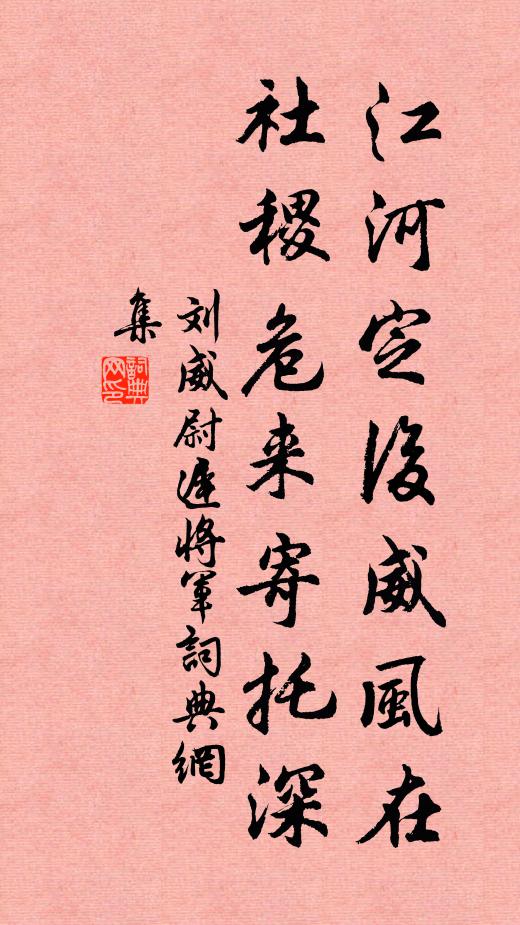 江河定後威風在
社稷危来寄托深
刘威尉遲將軍詞典網
集
詞典网印